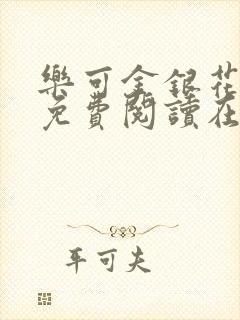 樂可金銀花
免費閱讀在
平可夫